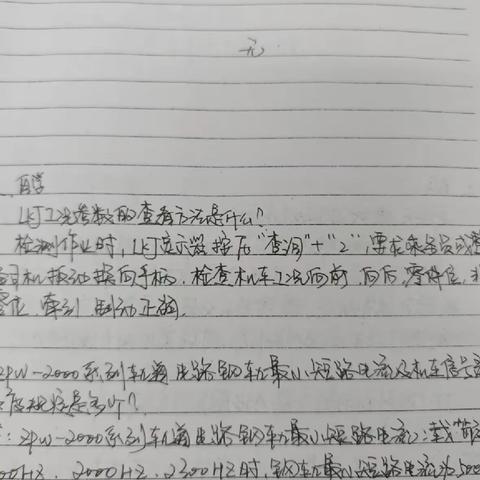 无
自学
LKJ工况参数的查看方法是什么?
检测作业时,LKJ显示器按压"查询"+"2",要求乘务员或
司机扳动换向手柄,检查机车工况向前、向后、零降位、
零位、牵引、制动正确。
ZPW-2000系列轨道电路钢轨最小短路电流及机车信号
度规定是多少?
:ZPW-2000系列轨道电路钢轨最小短路电流:载频
00HZ、2000HZ、2300HZ时,钢轨最小短路电流为500